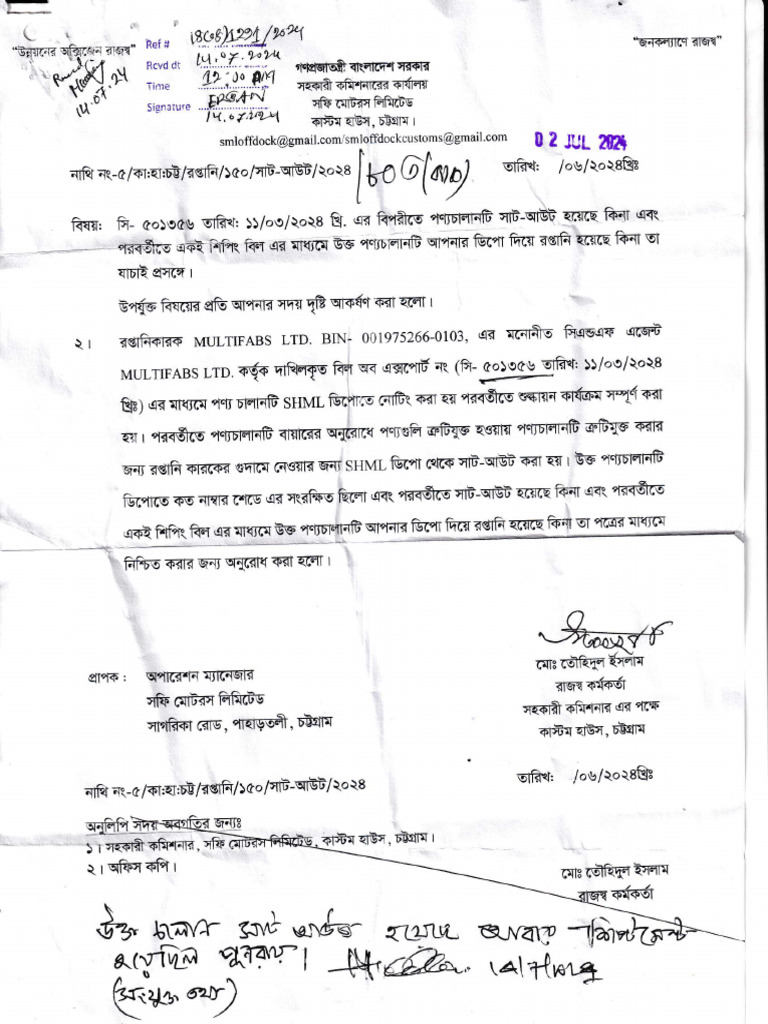 "উন্নয়নের অক্সিজেন রাজস্ব"
"জনকল্যাণে রাজস্ব"
Ref #
Rcvd dt 14.07.2024
Time 12:00
Signature
14.07.2024
14.07.24
গণপ্রজাতন্ত্রী বাংলাদেশ সরকার
সহকারী কমিশনারের কার্যালয়
সফি মোটরস লিমিটেড
কাস্টম হাউস, চট্টগ্রাম।
smloffdock@gmail.com/smloffdockcustoms@gmail.com
02 JUL 2024
নাথি নং-৫/কা:হা:চট্ট/রপ্তানি/১৫০/সাট-আউট/২০২৪
তারিখ: /০৬/২০২৪খ্রিঃ
বিষয়: সি- ৫০১৩৫৬ তারিখ: ১১/০৩/২০২৪ খ্রি. এর বিপরীতে পণ্যচালানটি সাট-আউট হয়েছে কিনা এবং
পরবর্তীতে একই শিপিং বিল এর মাধ্যমে উক্ত পণ্যচালানটি আপনার ডিপো দিয়ে রপ্তানি হয়েছে কিনা তা
যাচাই প্রসঙ্গে।
উপর্যুক্ত বিষয়ের প্রতি আপনার সদয় দৃষ্টি আকর্ষণ করা হলো।
২। রপ্তানিকারক MULTIFABS LTD. BIN- 001975266-0103, এর মনোনীত সিএন্ডএফ এজেন্ট
MULTIFABS LTD. কর্তৃক দাখিলকৃত বিল অব এক্সপোর্ট নং (সি- ৫০১৩৫৬ তারিখ: ১১/০৩/২০২৪
খ্রিঃ) এর মাধ্যমে পণ্য চালানটি SHML ডিপোতে নোটিং করা হয় পরবর্তীতে শুল্কায়ন কার্যক্রম সম্পূর্ণ করা
হয়। পরবর্তীতে পণ্যচালানটি বায়ারের অনুরোধে পণ্যগুলি ত্রুটিযুক্ত হওয়ায় পণ্যচালানটি ত্রুটিমুক্ত করার
জন্য রপ্তানি কারকের গুদামে নেওয়ার জন্য SHML ডিপো থেকে সাট-আউট করা হয়। উক্ত পণ্যচালানটি
ডিপোতে কত নাম্বার শেডে এর সংরক্ষিত ছিলো এবং পরবর্তীতে সাট-আউট হয়েছে কিনা এবং পরবর্তীতে
একই শিপিং বিল এর মাধ্যমে উক্ত পণ্যচালানটি আপনার ডিপো দিয়ে রপ্তানি হয়েছে কিনা তা পত্রের মাধ্যমে
নিশ্চিত করার জন্য অনুরোধ করা হলো।
মোঃ তৌহিদুল ইসলাম
রাজস্ব কর্মকর্তা
সহকারী কমিশনার এর পক্ষে
কাস্টম হাউস, চট্টগ্রাম
প্রাপক : অপারেশন ম্যানেজার
সফি মোটরস লিমিটেড
সাগরিকা রোড, পাহাড়তলী, চট্টগ্রাম
নাথি নং-৫/কা:হা:চট্ট/রপ্তানি/১৫০/সাট-আউট/২০২৪
তারিখ: /০৬/২০২৪খ্রিঃ
অনুলিপি সদয় অবগতির জন্যঃ
১। সহকারী কমিশনার, সফি মোটরস লিমিটেড, কাস্টম হাউস, চট্টগ্রাম।
২। অফিস কপি।
মোঃ তৌহিদুল ইসলাম
রাজস্ব কর্মকর্তা
উক্ত চালান সাট আউট হয়েছে আবার শিপমেন্ট
হয়েছিল পুনরায়।
(সংযুক্ত তথ্য)